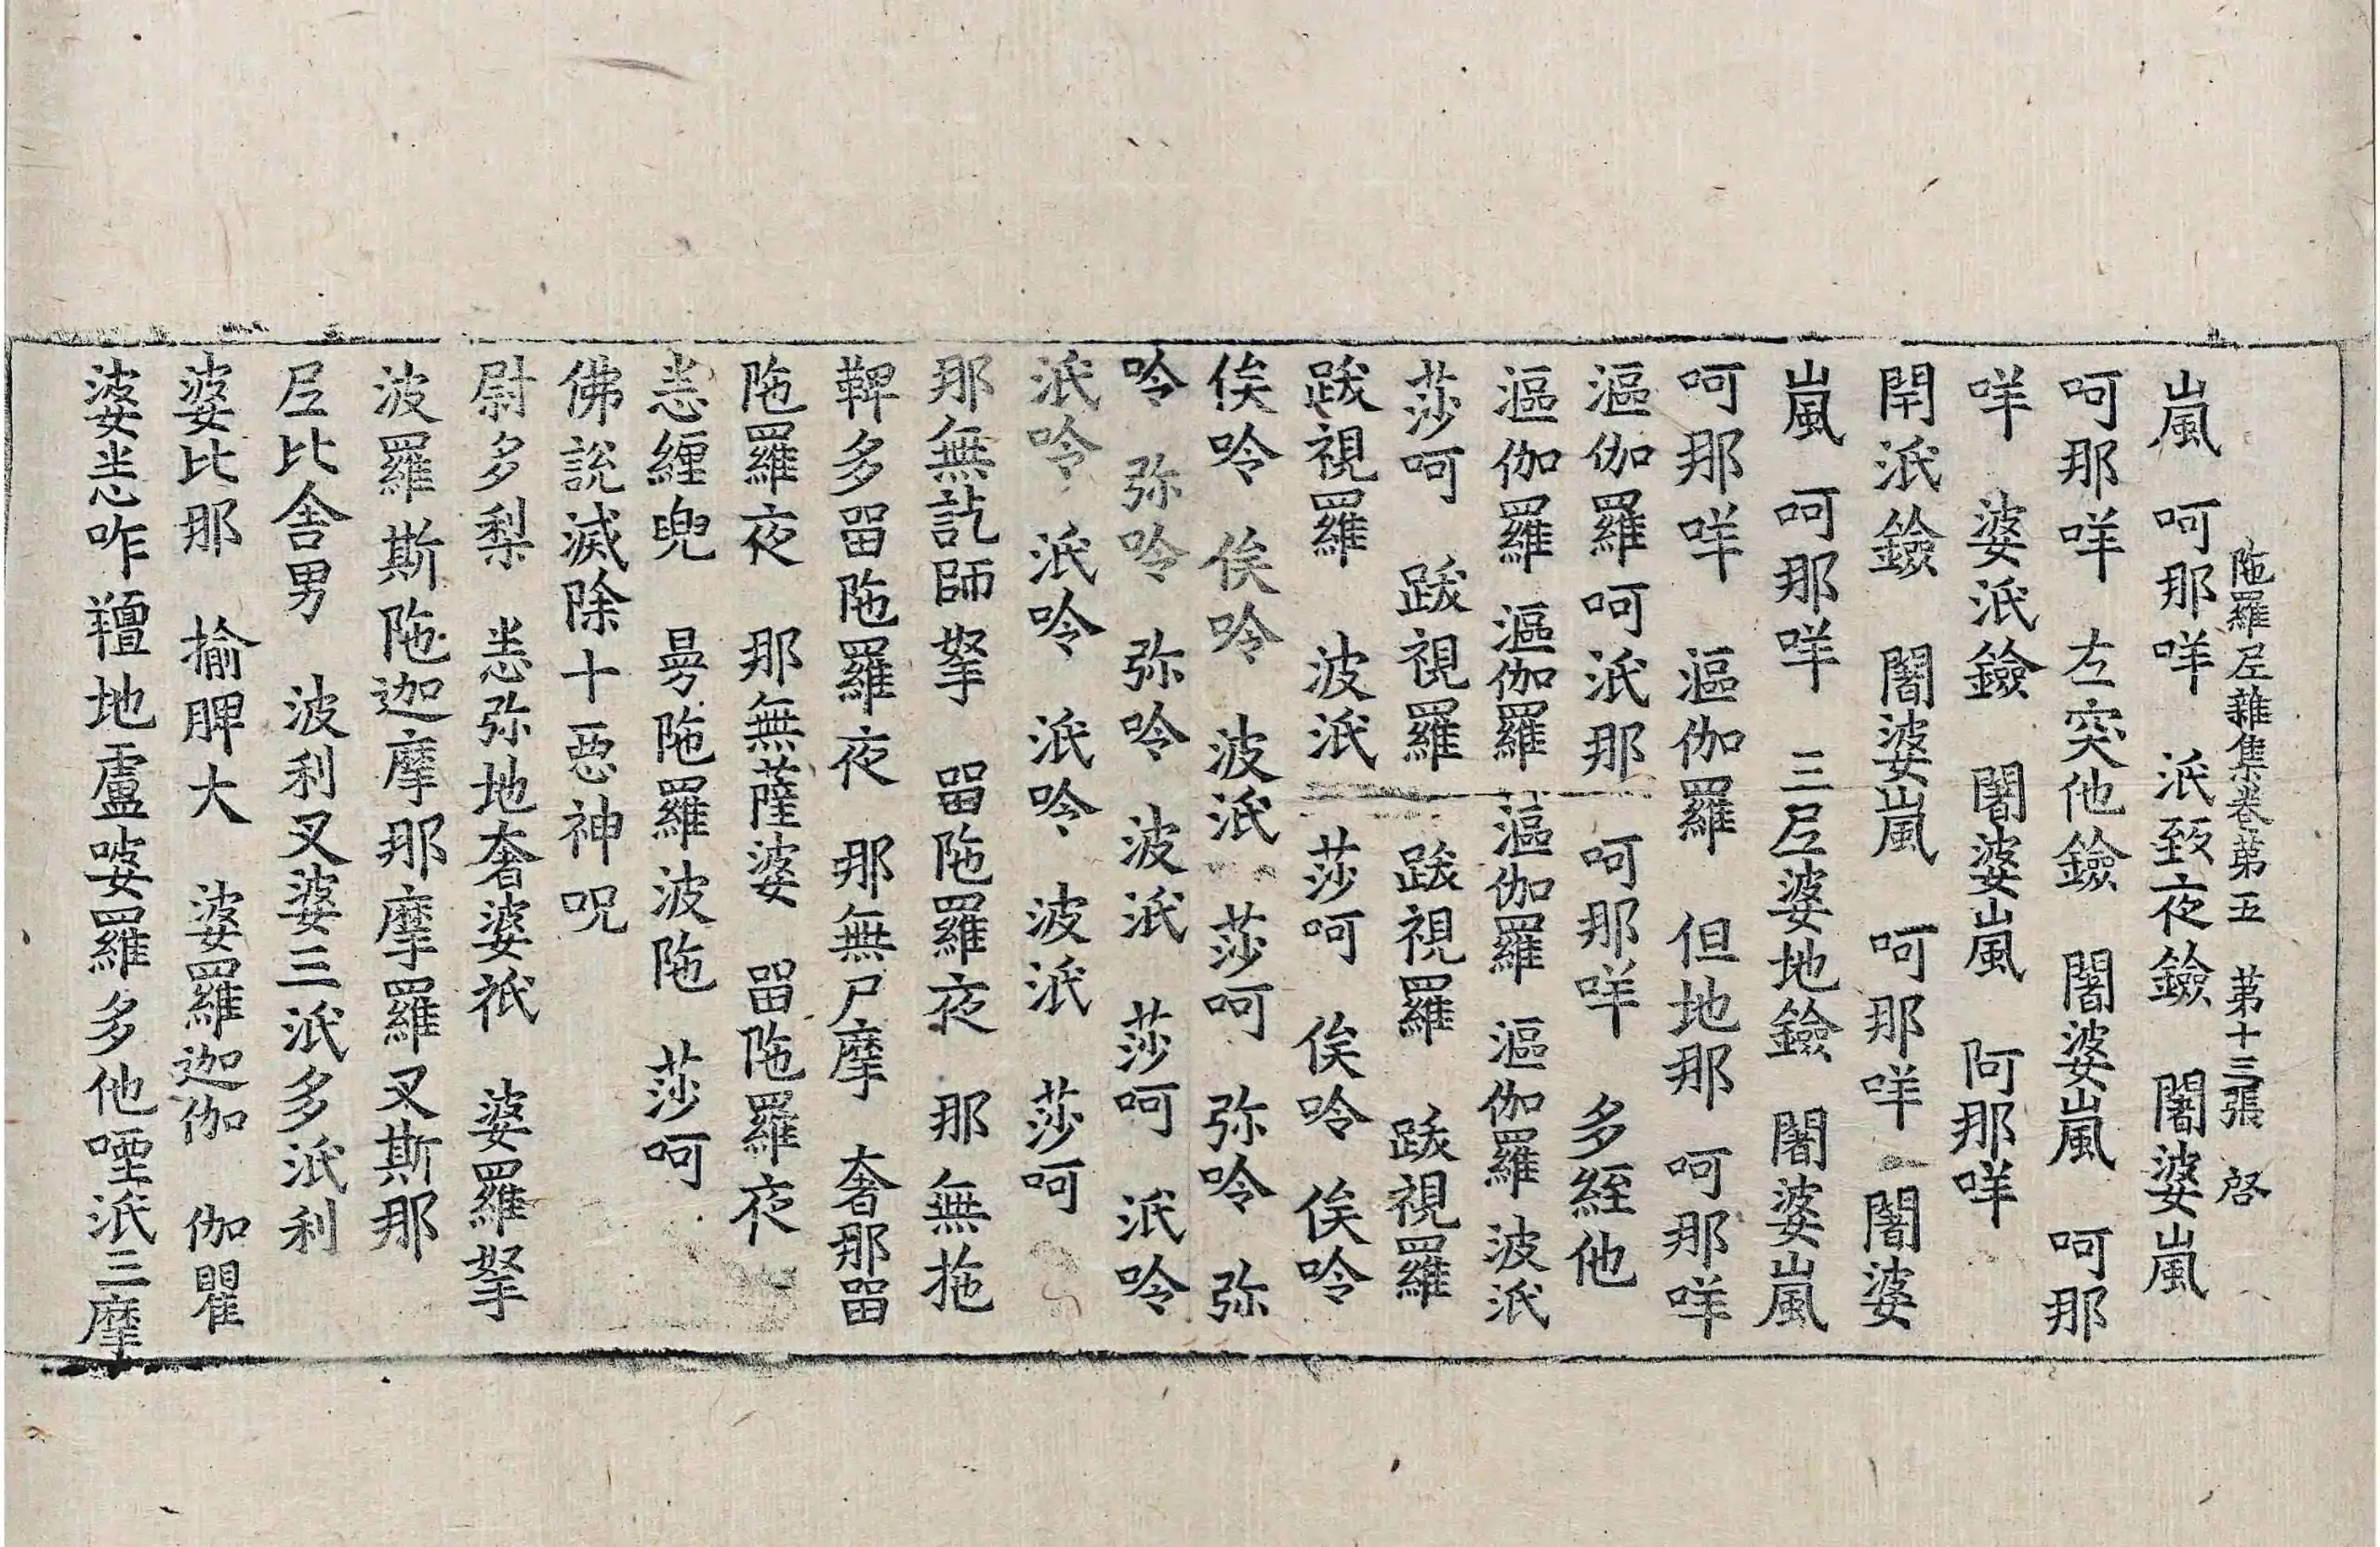 陁羅𡰱雜集卷第五 第十三張 啓
嵐 呵那咩 泜致夜鐱 闍婆嵐
呵那咩 左突他鐱 闍婆嵐 呵那
咩 婆泜鐱 闍婆嵐 阿那咩
閈泜鐱 闍婆嵐 呵那咩 闍婆
嵐 呵那咩 三𡰱婆地鐱 闍婆嵐
呵那咩 漚伽羅 但地那 呵那咩
漚伽羅 呵泜那 呵那咩 多絰他
漚伽羅 漚伽羅 漚伽羅 漚伽羅 波泜
莎呵 跋視羅 跋視羅 跋視羅
跋視羅 波泜 莎呵 俟呤 俟呤
俟呤 俟呤 波泜 莎呵 弥呤 弥
呤 弥呤 弥呤 波泜 莎呵 泜呤
泜呤 泜呤 泜呤 波泜 莎呵
那無訖師拏 留陁羅夜 那無拖
鞞多留陁羅夜 那無尸摩 奢那留
陁羅夜 那無薩婆 留陁羅夜
恚緾兜 曼陁羅波陁 莎呵
佛說滅除十惡神呪
尉多梨 恚弥地奢婆祇 婆羅拏
波羅斯陁迦摩那摩羅叉斯那
𡰱比舍男 波利叉婆三泜多泜利
婆比那 揄脾大 婆羅迦伽 伽瞿
婆恚咋羶地盧婆羅多他𠼝泜三摩